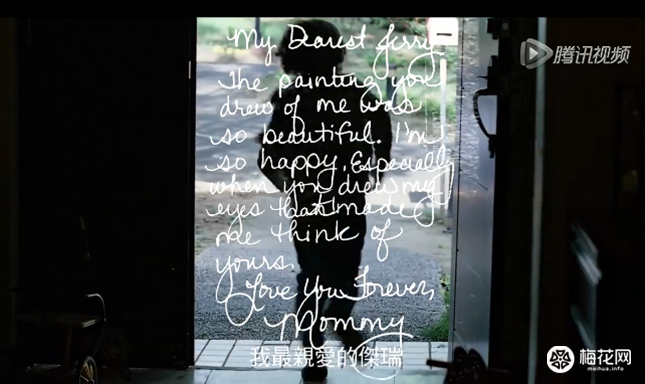 My Dearest Jerry
腾讯视频
The painting you
drew of me was
so beautiful. I'm
so happy. Especially
when you drew my
eyes that made
me think of
yours.
Love You Forever,
Mommy
我最親愛的傑瑞
梅花网
meihua.info